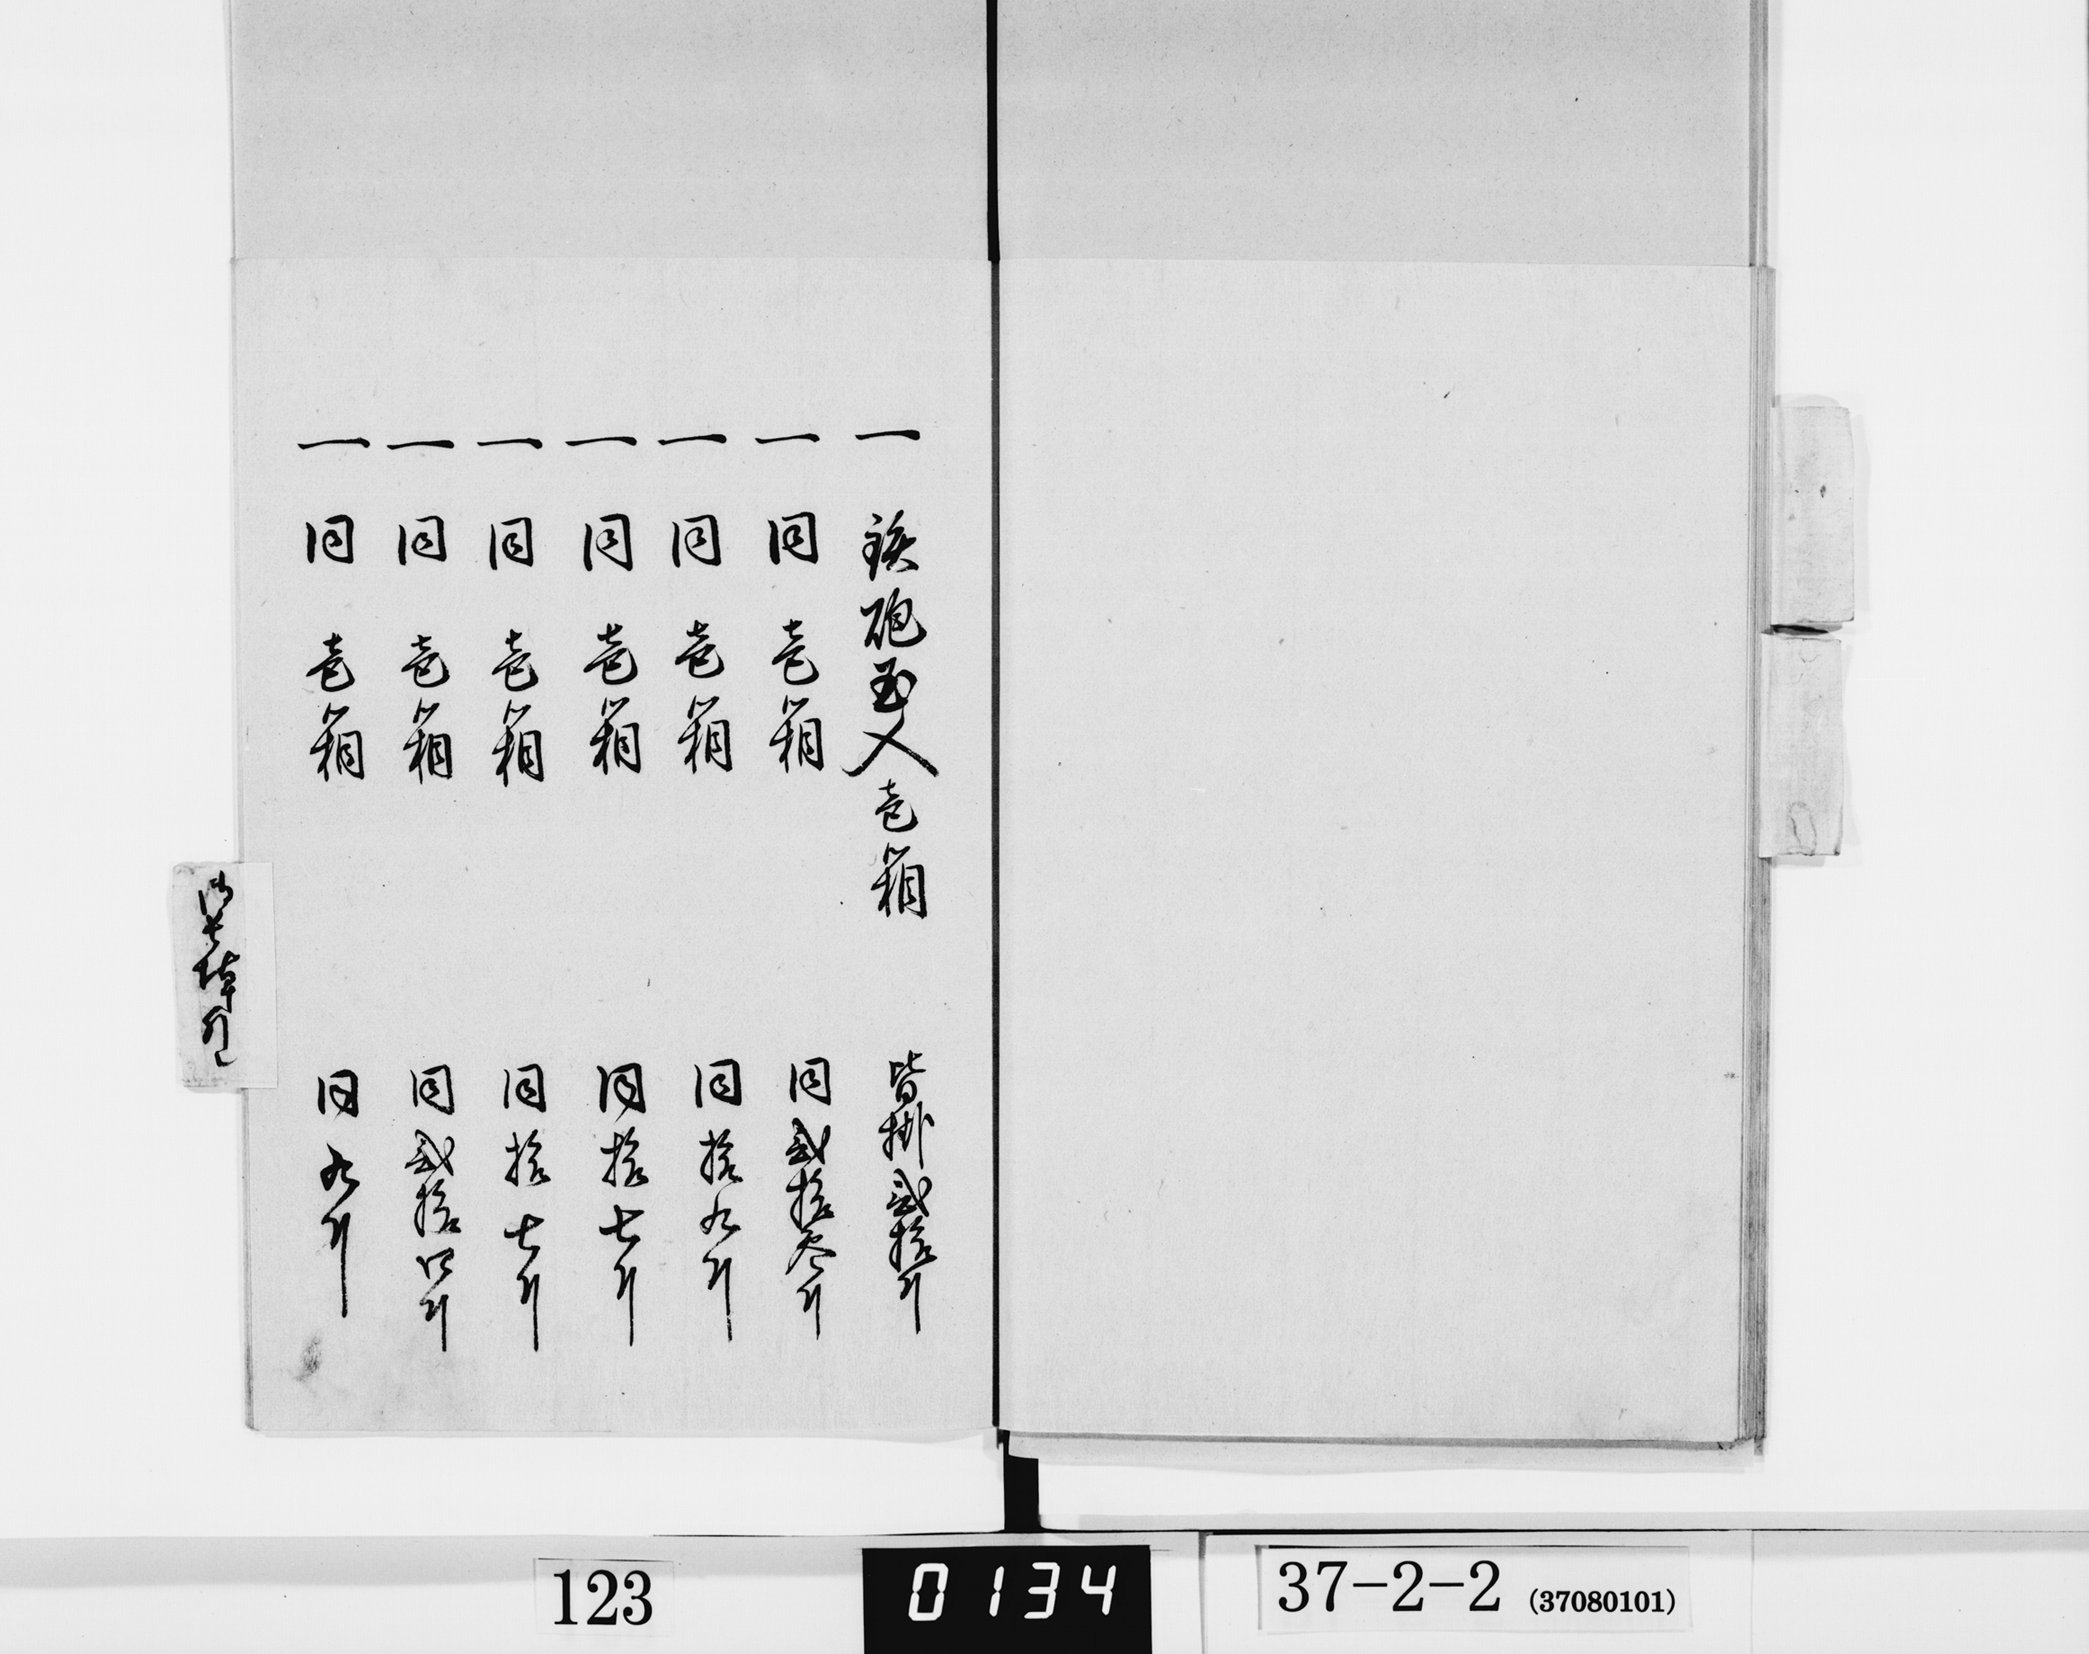 一 鉄砲玉入壱箱 皆掛弐拾斤
一 同 壱箱 同弐拾参斤
一 同 壱箱 同拾九斤
一 同 壱箱 同拾七斤
一 同 壱箱 同拾七斤
一 同 壱箱 同弐拾四斤
一 同 壱箱 同九斤
御長棹
123
0134
37-2-2 (37080101)